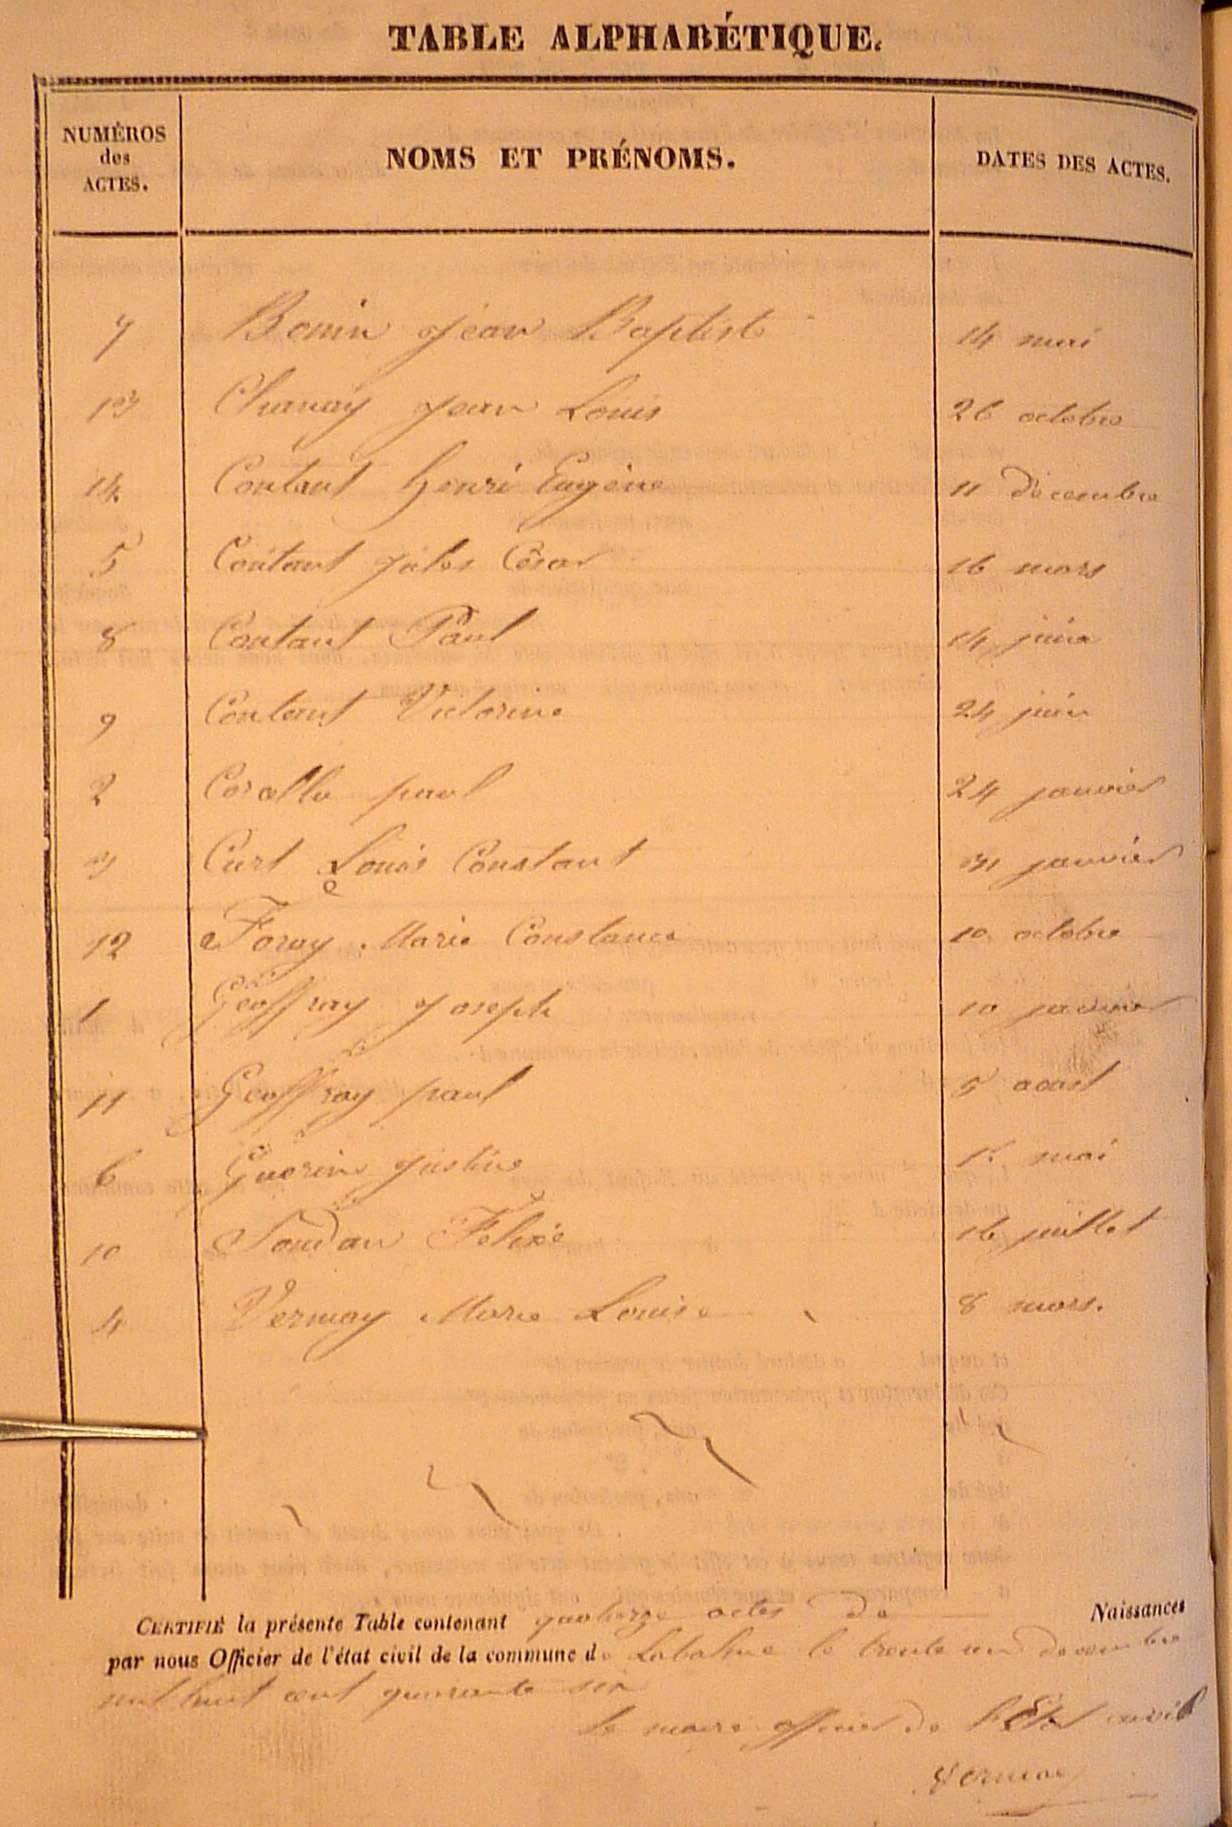 TABLE ALPHABÉTIQUE.
NUMÉROS des ACTES. NOMS ET PRÉNOMS. DATES DES ACTES.
7 Bonin jean Baptiste 14 mai
13 Charvay jean Louis 26 octobre
14 Contant henri Eugène 11 décembre
5 Contant jules César 16 mars
8 Contant Paul 14 juin
9 Contant Victorine 24 juin
2 Corallo paul 24 janvier
3 Curt Louis Constant 31 janvier
12 Foray Marie Constance 10 octobre
1 Geoffray joseph 10 janvier
11 Geoffray paul 5 aoust
6 Guerin justine 1r mai
10 Soudan Félix 16 juillet
4 Vernay Marie Louise 8 mars.
CERTIFIÉ la présente Table contenant quatorze actes de Naissances
par nous Officier de l'état civil de la commune de Labalme le trente un décembre
mil huit cent quarante six
le maire officier de l'État civil
Vernay